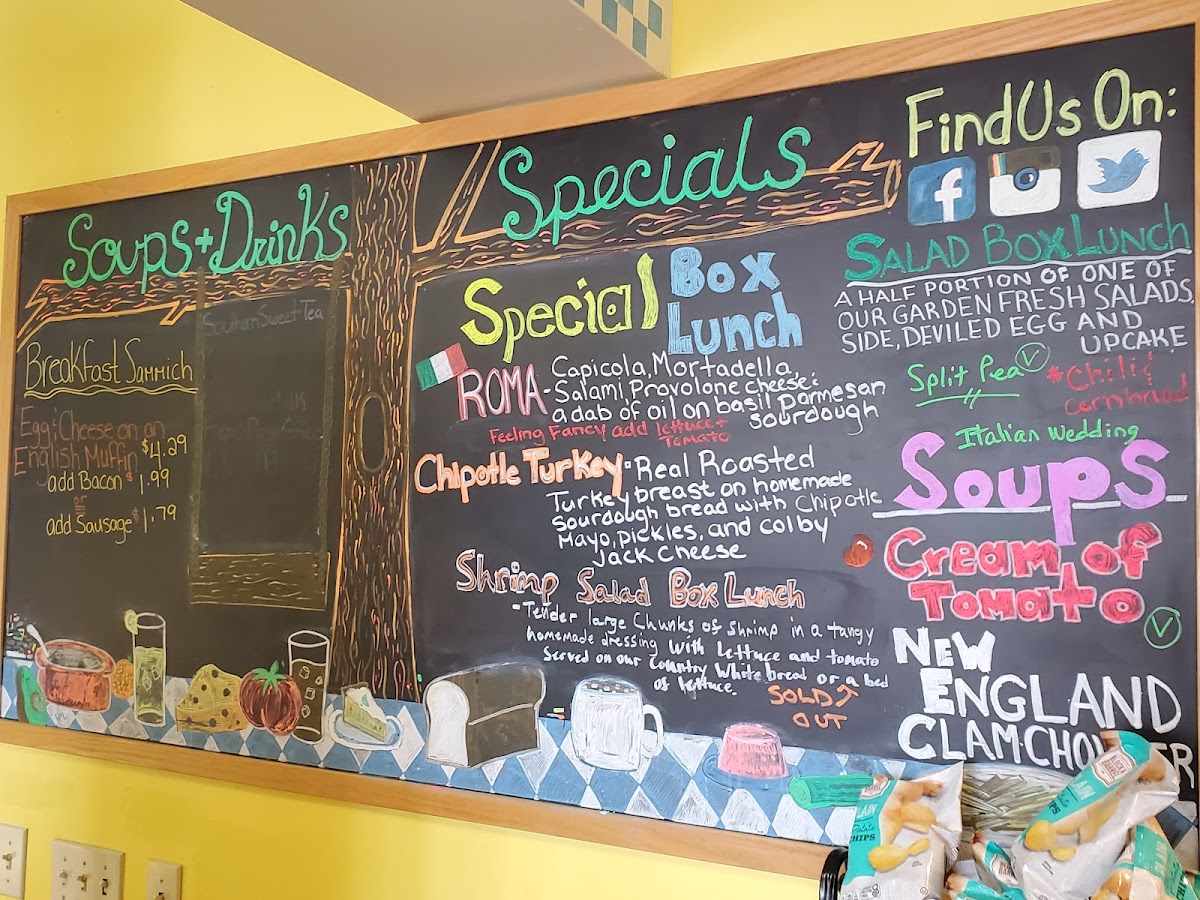 Soups + Drinks
Southern Sweet Tea
Breakfast Sammich
Egg & Cheese on an
English Muffin $4.29
add Bacon $1.99
or
add Sausage $1.79
Specials
Special Box
Lunch
ROMA - Capicola, Mortadella,
Salami, Provolone cheese &
a dab of oil on basil Parmesan
sourdough
Feeling Fancy add lettuce +
Tomato
Chipotle Turkey - Real Roasted
Turkey breast on homemade
sourdough bread with Chipotle
Mayo, pickles, and colby
jack cheese
Shrimp Salad Box Lunch
- Tender large chunks of shrimp in a tangy
homemade dressing with lettuce and tomato
served on our country white bread or a bed
of lettuce.
SOLD
OUT
Find Us On:
f
SALAD BOX LUNCH
A HALF PORTION OF ONE OF
OUR GARDEN FRESH SALADS,
SIDE, DEVILED EGG AND
UPCAKE
Split Pea
*Chili &
cornbread
Italian Wedding
Soups
Cream of
Tomato
NEW
ENGLAND
CLAM CHOWDER
CHIPS